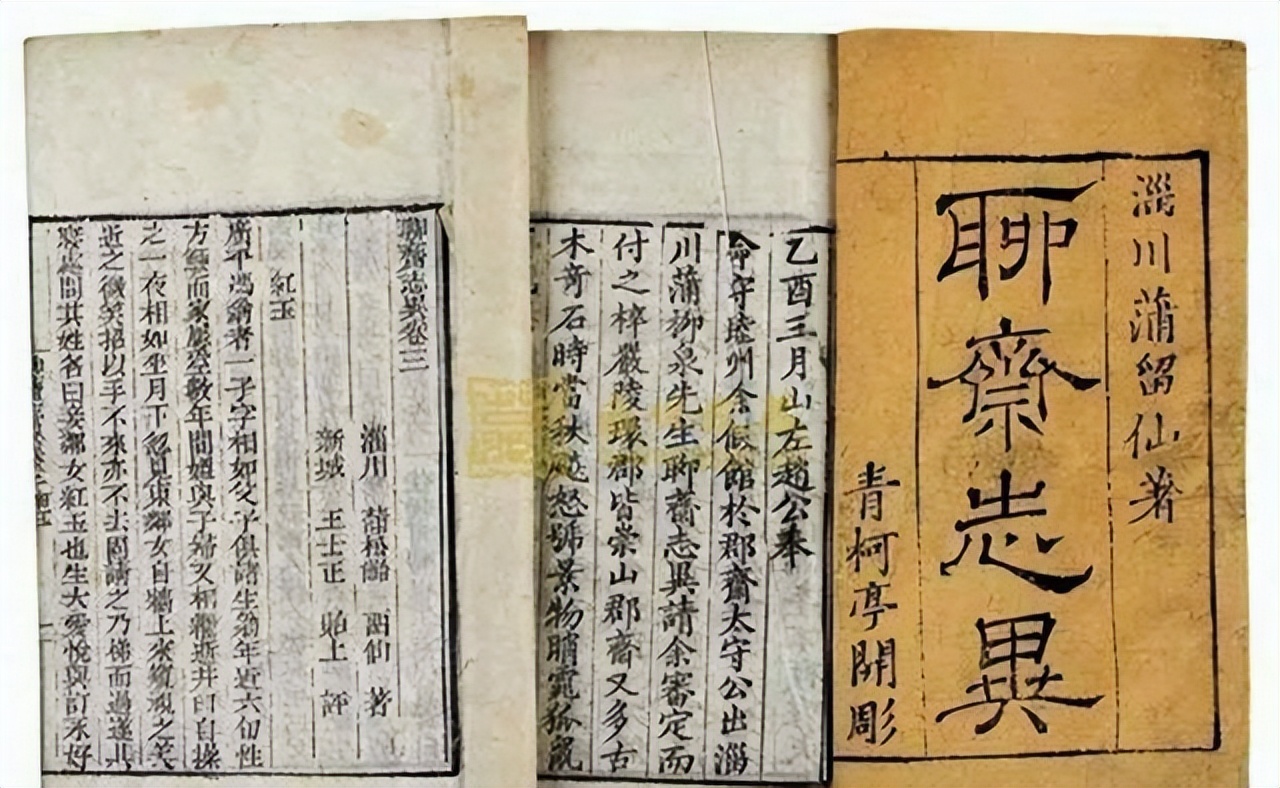 淄川蒲留仙著
聊齋志異
青柯亭開彫
乙酉三月山左趙公奉
命守睦州余假館於郡齋太守公出淄
川蒲柳泉先生聊齋志異請余審定而
付之梓嚴陵環郡皆崇山郡齋又多古
木奇石時當秋飈怒號景物睄窕狐鼠
聊齋志異卷三
淄川 蒲松齡 留仙 著
新城 王士正 貽上 評
紅玉
廣平馮翁者一子字相如父子俱諸生翁年近六旬性
方鯁而家屢空數年間媼與子婦又相繼逝井臼自操
之一夜相如坐月下忽見東鄰女自牆上來窺視之美
近之微笑招以手不來亦不去固請之乃梯而過遂共
寢處問其姓名曰妾鄰女紅玉也生大愛悅與訂永好